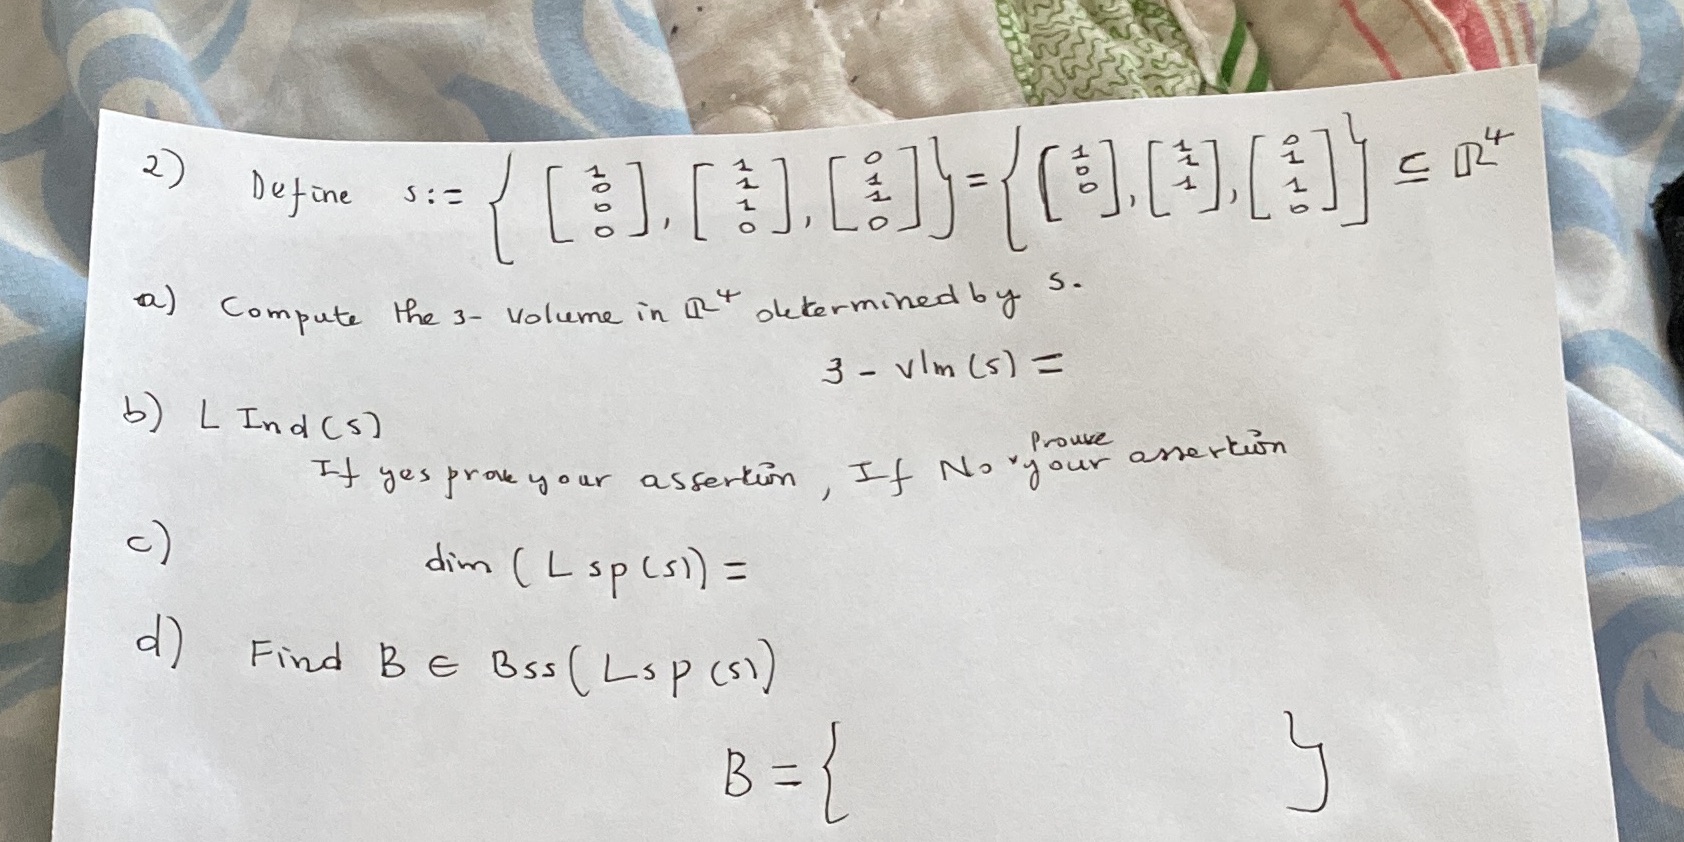 2) Define s:= { [1 0 0 0], [1 1 1 0], [0 1 1 0] } = { [1 0 0], [1 1 1], [0 1 1 0] } ⊆ ℝ⁴
a) Compute the 3- volume in ℝ⁴ determined by s.
3 - vlm (s) =
b) L Ind (s)
If yes prove your assertion, If No, Prouve your assertion
c) dim (L sp (s)) =
d) Find B ∈ Bss (Lsp (s))
B = { }